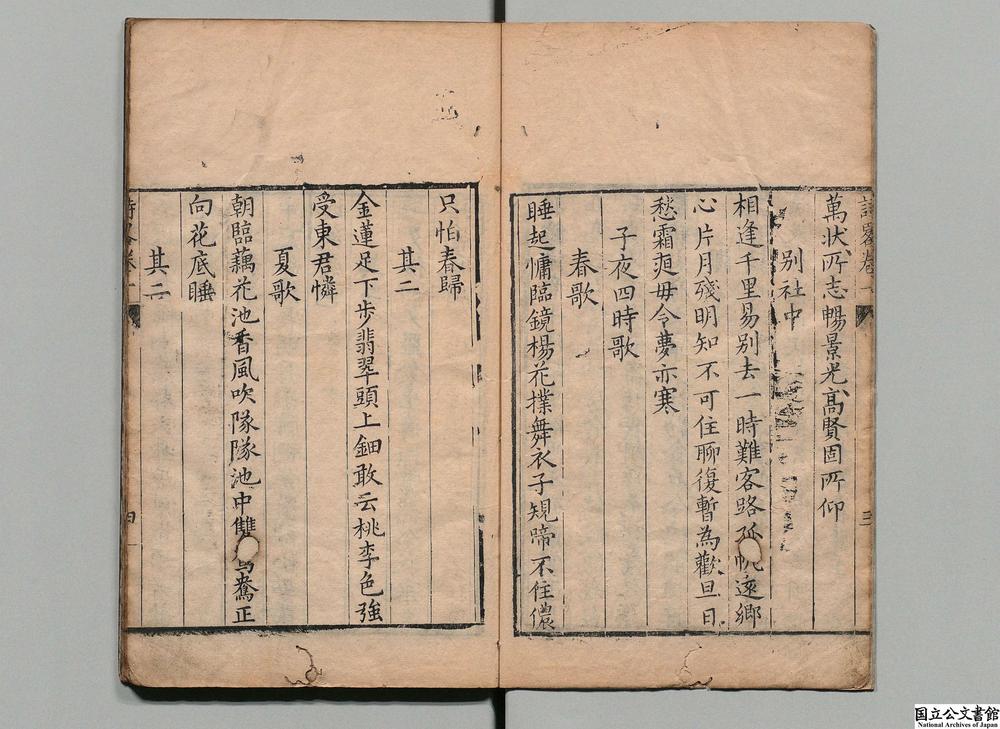 萬狀所志暢景光高賢固所仰
別社中
相逢千里易別去一時難客路孤帆遠鄉
心片月殘明知不可住聊復暫為歡旦日
愁霜苑毋令夢亦寒
子夜四時歌
春歌
睡起慵臨鏡楊花撲舞衣子規啼不住儂
三
只怕春歸
其二
金蓮足下步翡翠頭上鈿敢云桃李色強
受東君憐
夏歌
朝臨藕花池香風吹隊隊池中雙鴛鴦正
向花底睡
其二
四
国立公文書館
National Archives of Japan